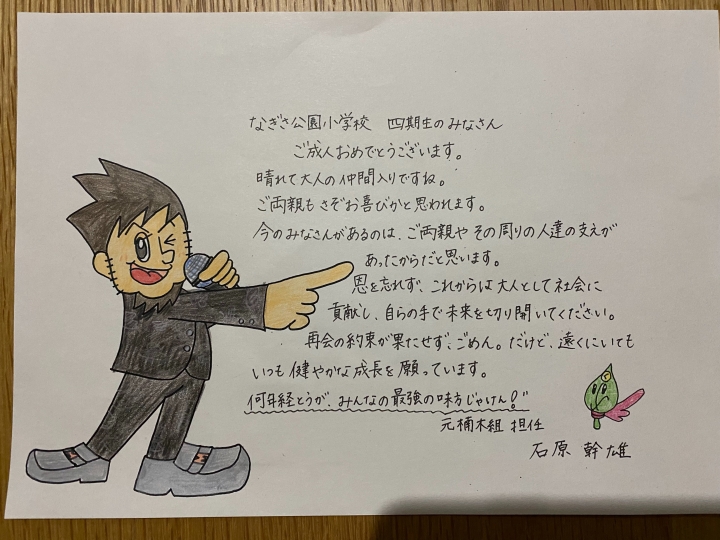 なぎさ公園小学校 四期生のみなさん
ご成人おめでとうございます。
晴れて大人の仲間入りですね。
ご両親もさぞお喜びかと思われます。
今のみなさんがあるのは、ご両親やその周りの人達の支えが
あったからだと思います。
恩を忘れず、これからは大人として社会に
貢献し、自らの手で未来を切り開いてください。
再会の約束が果たせず、ごめん。だけど、遠くにいても
いつも健やかな成長を願っています。
何年経とうが、みんなの最強の味方じゃけん!"
元楠木組 担任
石原 幹雄